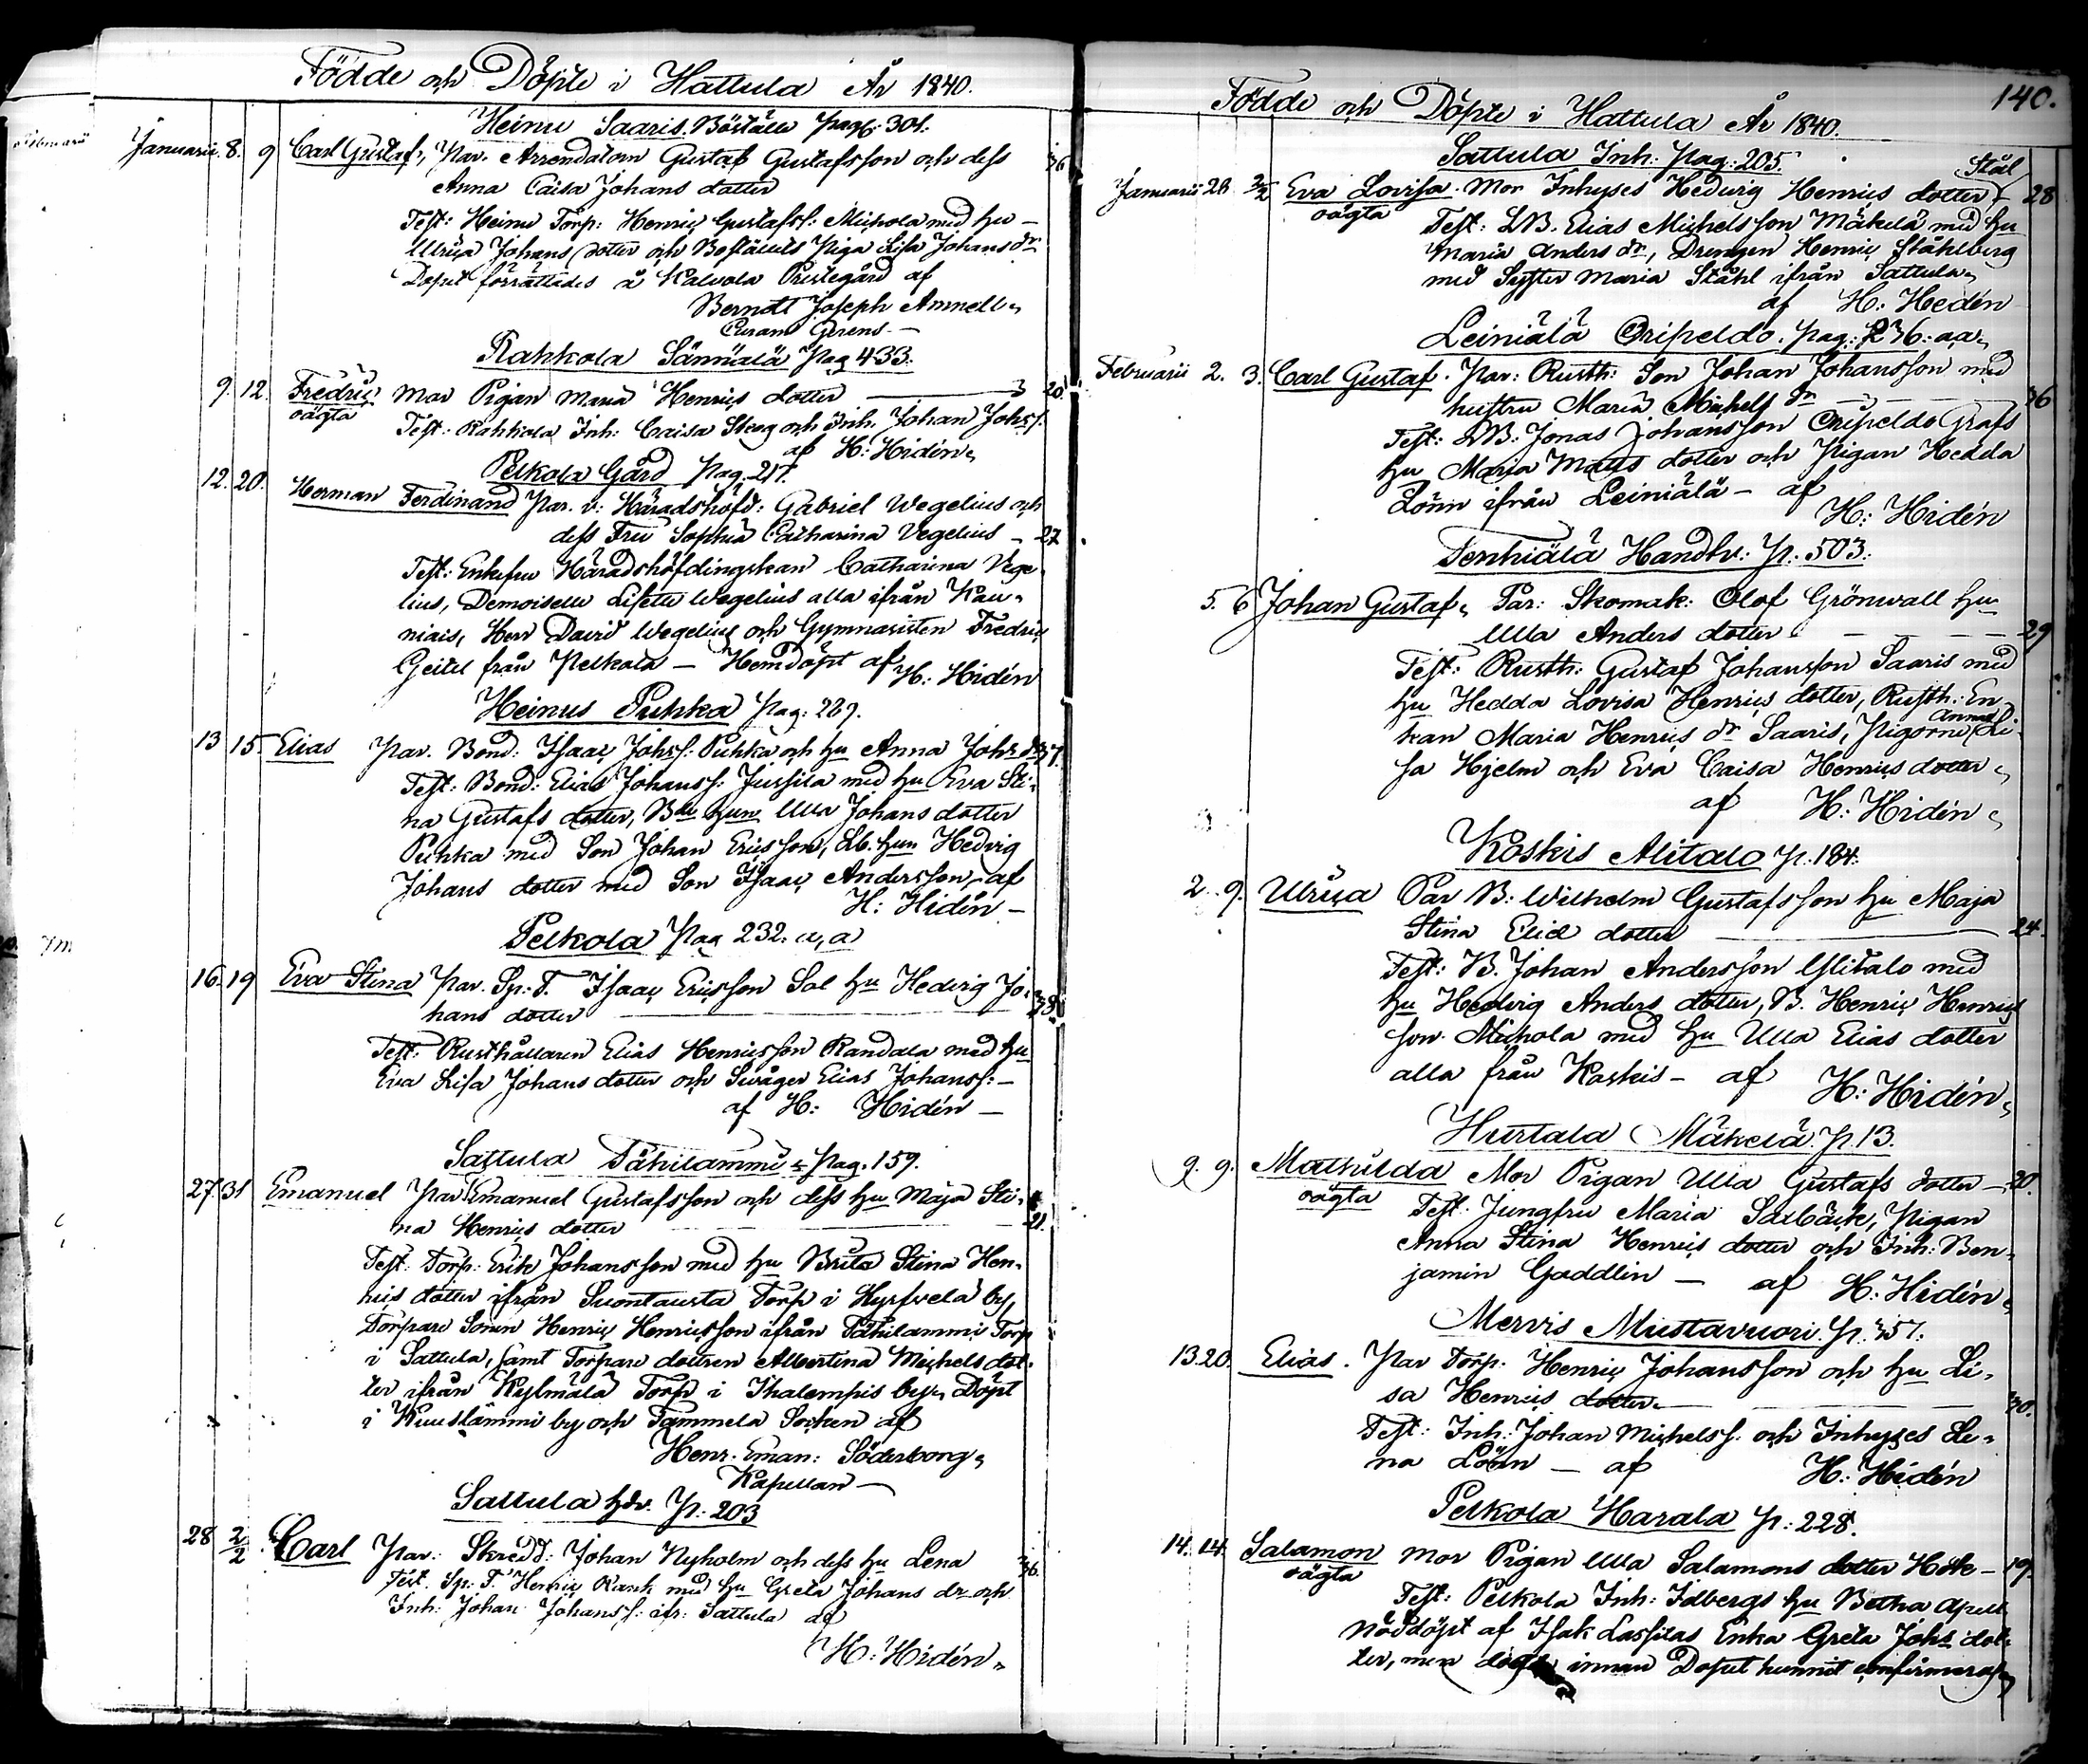 Födde och Döpte i Hattula År 1840.
Heinu Saaris Böställe pag: 301.
Januarii 8. 9 Carl Gustaf, Par. Arrendatorn Gustaf Gustafsson och dess 36
Anna Caisa Johans dotter
Test: Heinu Torp: Henric Gustafss: Michola med hu
Ulrica Johans dotter och Boställets Piga Lisa Johans dr
Dopet förrättades å Kalvola Prestegård af
Berndt Joseph Amnell
Curam Gerens
Rahkola Sänniälä Pag 433.
9. 12. Fredric Mor Pigan Maria Henrics dotter 20.
oägta Test: Rahkola Inh: Caisa Skog och Inh. Johan Johss.
af H: Hidén
Pelkola Gård Pag. 217.
12. 20. Herman Ferdinand Par. v: Häradshöfd: Gabriel Wegelius och
dess Fru Sophia Catharina Wegelius 27
Test: Enkefru Häradshöfdingskan Catharina Vege-
lius, Demoiselle Lisette Wegelius alla ifrån Kau-
niais, Herr David Wegelius och Gymnasisten Fredric
Geitel från Pelkola – Hemdöpt af H: Hidén
Heinus Puhka Pag: 289.
13 15. Elias Par. Bond: Isaac Johss: Puhka och hu Anna Johs dr 37.
Test: Bond: Elias Johanss: Jussila med hu Eva Sti-
na Gustafs dotter, Bde hun Ulla Johans dotter
Puhka med Son Johan Ericsson, Lb. hun Hedvig
Johans dotter med Son Isaac Andersson, af
H: Hidén –
Pelkola Pag 232. a, a
16. 19 Eva Stina Par. Sp: T. Isaac Ericsson Sal hu Hedvig Jo- 38.
hans dotter
Test: Rusthållaren Elias Henricsson Randala med hu
Eva Lisa Johans dotter och Swåger Elias Johanss: –
af H: Hidén –
Sattula Tähilammi Pag. 159.
27. 31 Emanuel Par Emanuel Gustafsson och dess hu Maja Sti-
na Henrics dotter 21.
Test. Torp: Erik Johansson med hu Brita Stina Hen-
rics dotter ifrån Suontausta Torp i Hyrfvelä by,
Torpare Sonen Henric Henricsson ifrån Tähilammi Torp
i Sattula, samt Torpare dottren Albertina Michels dot-
ter ifrån Kylmälä Torp i Ihalempis by, Döpt
i Kuuslammi by och Tammela Socken af
Henr. Eman: Söderborg
Kapellan –
Sattula hdr. P: 203
28 2/2 Carl Par: Skredd: Johan Nyholm och dess hu Lena 36.
Test. Sp: T. Henric Rank med hu Greta Johans dr och
Inh: Johan Johanss: ifr: Sattula af
H: Hidén
Födde och Döpte i Hattula År 1840. 140.
Sattula Inh: Pag: 205.
Stål
Januarii 28 2/2 Eva Lovisa. Mor Inhyses Hedvig Henrics dotter 28
oägta Test: LB. Elias Michelsson Mäkelä med hu
Maria Anders dr, Drengen Henric Ståhlberg
med Syster Maria Ståhl ifrån Sattula
af H: Hedén
Leiniälä Oripeldo. pag: 236: aa
Februarii 2. 3. Carl Gustaf. Par: Rusth: Son Johan Johansson med
hustru Maria Michels dr 36
Test: LB: Jonas Johansson Oripeldo Grafs
hu Maria Matts dotter och Pigan Hedda
Lönn ifrån Leiniälä – af
H: Hidén
Tenhiälä Handtv: P. 503.
5. 6 Johan Gustaf. Par: Skomak: Olof Grönwall hu
Ulla Anders dotter 29
Test: Rusth: Gustaf Johansson Saaris med
hu Hedda Lovisa Henrics dotter, Rusth: En-
kan Maria Henrics dr Saaris, Pigorna Anna Li-
sa Hjelm och Eva Caisa Henrics dotter
af H: Hidén
Koskis Alitalo P. 184.
2. 9. Ulrica Par B: Wilhelm Gustafsson hu Maja
Stina Elie dotter 24.
Test: B. Johan Andersson Ylitalo med
hu Hedvig Anders dotter, B. Henric Henrics
son Michola med hu Ulla Elias dotter
alla från Koskis – af H: Hidén
Hurtala Mäkelä P. 13.
9. 9. Mathilda Mor Pigan Ulla Gustafs dotter 20.
oägta Test: Jungfru Maria Saxbäck, Pigan
Anna Stina Henrics dotter och Inh: Ben-
jamin Gaddlin – af H: Hidén
Mervis Mustavuori P. 357.
13. 20. Elias. Par Torp: Henric Johansson och hu Li-
sa Henrics dotter 30.
Test: Inh: Johan Michelss: och Inhyses Le-
na Lönn – af H: Hidén
Pelkola Harala P: 228.
14. 14. Salamon Mor Pigan Ulla Salamons dotter Hök – 19.
oägta Test: Pelkola Inh: Idbergs hu Betha Apell
Nöddöpt af Isak Lassilas Enka Greta Johs dot-
ter, men innan Dopet hunnit confirmeras